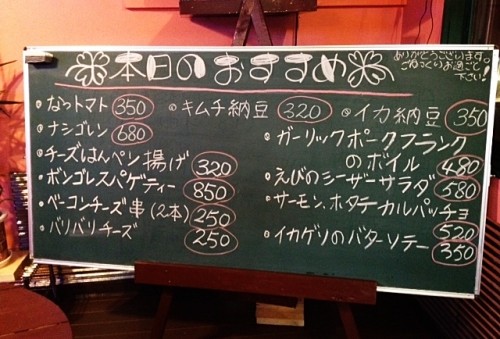 本日のおすすめ
ありがとうございます。
ごゆっくりお過ごし
下さい!
なっトマト 350
キムチ納豆 320
イカ納豆 350
ナシゴレン 680
ガーリックポークフランク
のボイル 480
チーズはんペン揚げ 320
えびのシーザーサラダ 580
ボンゴレスパゲティー 850
サーモン、ホタテカルパッチョ
520
ベーコンチーズ串(2本) 250
イカゲソのバターソテー 350
バリバリチーズ 250